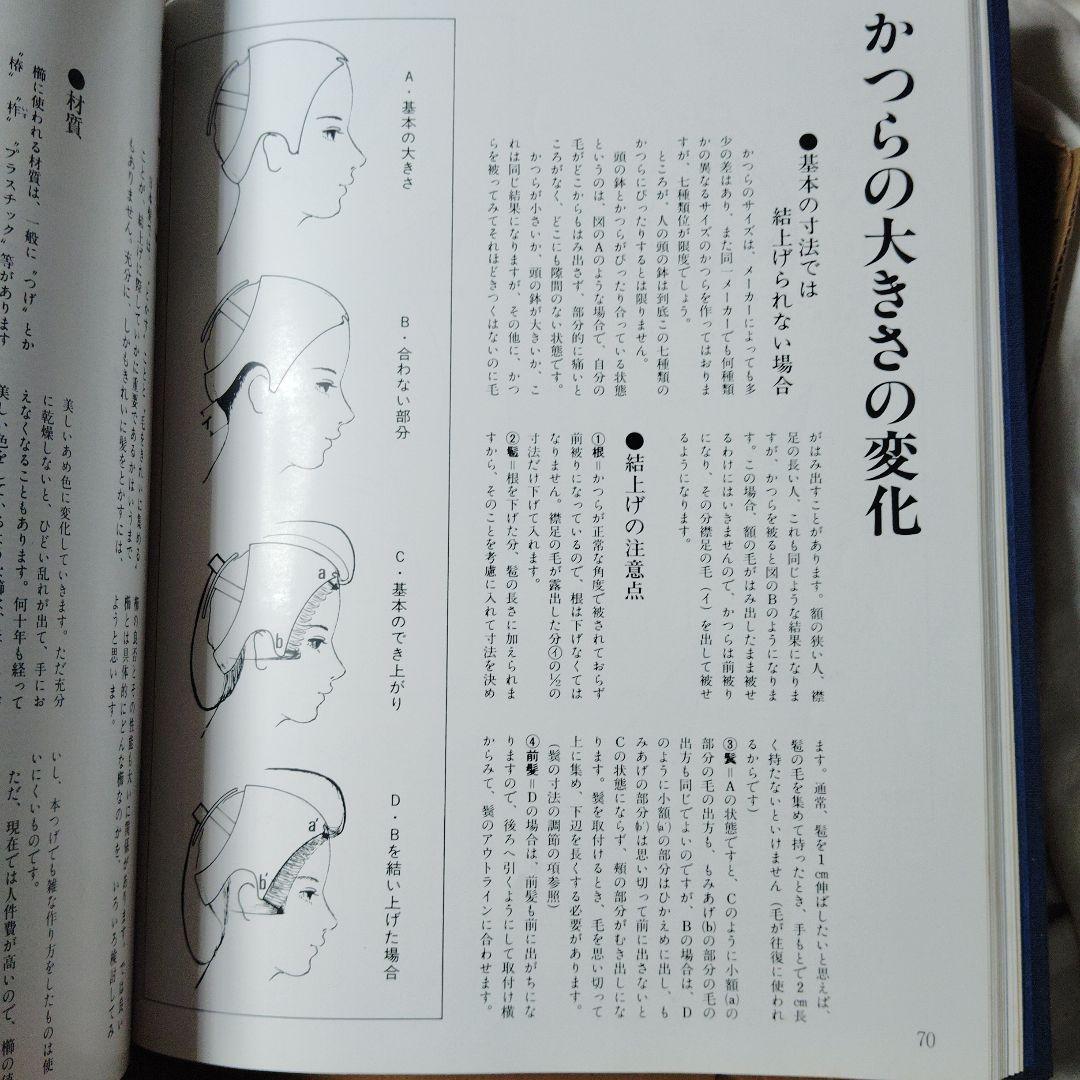 かつらの大きさの変化
●基本の寸法では
結上げられない場合
かつらのサイズは、メーカーによっても多
少の差はあり、また同一メーカーでも何種類
かの異なるサイズのかつらを作ってはおりま
すが、七種類位が限度でしょう。
ところが、人の頭の鉢は到底この七種類の
かつらにぴったりするとは限りません。
頭の鉢とかつらがぴったり合っている状態
というのは、図のAのような場合で、自分の
毛がどこからもはみ出さず、部分的に痛いと
ころがなく、どこにも隙間のない状態です。
かつらが小さいか、頭の鉢が大きいか、こ
れは同じ結果になりますが、その他に、かつ
らを被ってみてそれほどきつくはないのに毛
がはみ出すことがあります。額の狭い人、襟
足の長い人、これも同じような結果になりま
すが、かつらを被ると図のBのようになりま
す。この場合、額の毛がはみ出したまま被せ
るわけにはいきませんので、かつらは前被り
になり、その分襟足の毛(イ)を出して被せ
るようになります。
●結上げの注意点
①根＝かつらが正常な角度で被されておらず
前被りになっているので、根は下げなくては
なりません。襟足の毛が露出した分㋑の½の
寸法だけ下げて入れます。
②髱＝根を下げた分、髱の長さに加えられま
すから、そのことを考慮に入れて寸法を決め
ます。通常、髱を1㎝伸ばしたいと思えば、
髱の毛を集めて持ったとき、手もとで2㎝長
く持たないといけません(毛が往復に使われ
るからです)
③鬢＝Aの状態ですと、Cのように小額(a)の
部分の毛の出方も、もみあげ(b)の部分の毛の
出方も同じでよいのですが、Bの場合は、D
のように小額(a′)の部分はひかえめに出し、も
みあげの部分(b′)は思い切って前に出さないと
Cの状態にならず、頬の部分がむき出しにな
ります。鬢を取付けるとき、毛を思い切って
上に集め、下辺を長くする必要があります。
(鬢の寸法の調節の項参照)
④前髪＝Dの場合は、前髪も前に出がちにな
りますので、後ろへ引くようにして取付け横
からみて、鬢のアウトラインに合わせます。
A・基本の大きさ
B・合わない部分
イ
C・基本のでき上がり
a
b
D・Bを結い上げた場合
a′
b′
70
●材質
櫛に使われる材質は、一般に〝つげ〟とか
〝椿〟〝柞〟〝プラスチック〟等があります
もありません。充分に、しかもきれいに髪をとかすには、
美しいあめ色に変化していきます。ただ充分
に乾燥しないと、ひどい乱れが出て、手にお
えなくなることもあります。何十年も経って
櫛とは具体的にどんな櫛なのかを、いろいろ検討してみ
ようと思います。
いし、本つげでも雑な作り方をしたものは使
いにくいものです。
ただ、現在では人件費が高いので、